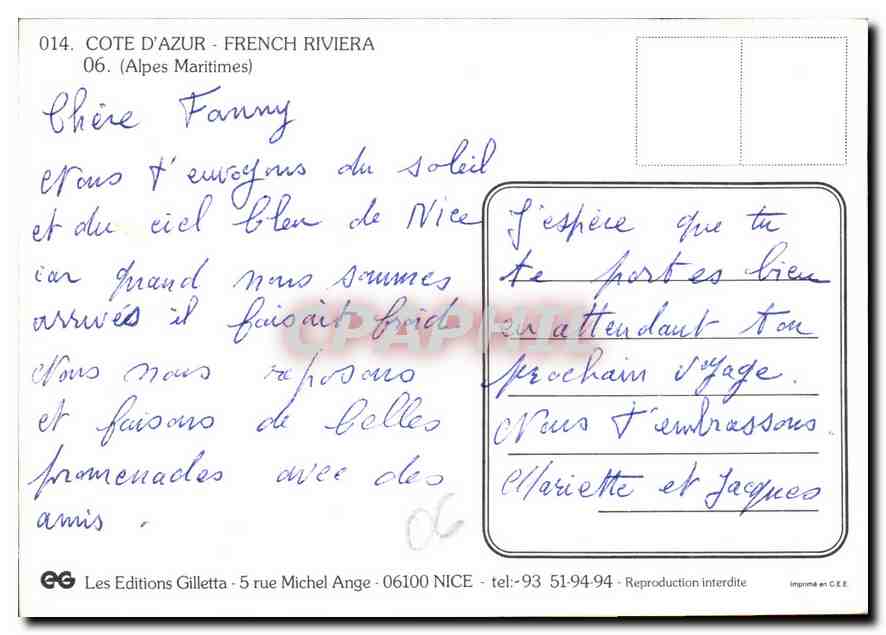 014. COTE D'AZUR - FRENCH RIVIERA
06. (Alpes Maritimes)
Chère Fanny
Nous t'envoyons du soleil
et du ciel bleu de Nice
car quand nous sommes
arrivés il faisait froid
Nous nous reposons
et faisons de belles
promenades avec des
amis.
J'espère que tu
te portes bien
en attendant ton
prochain voyage.
Nous t'embrassons.
Mariette et Jacques
06
CPAPHIL
eG Les Editions Gilletta - 5 rue Michel Ange - 06100 NICE - tel:-93 51-94-94 - Reproduction interdite
Imprimé en C.E.E.